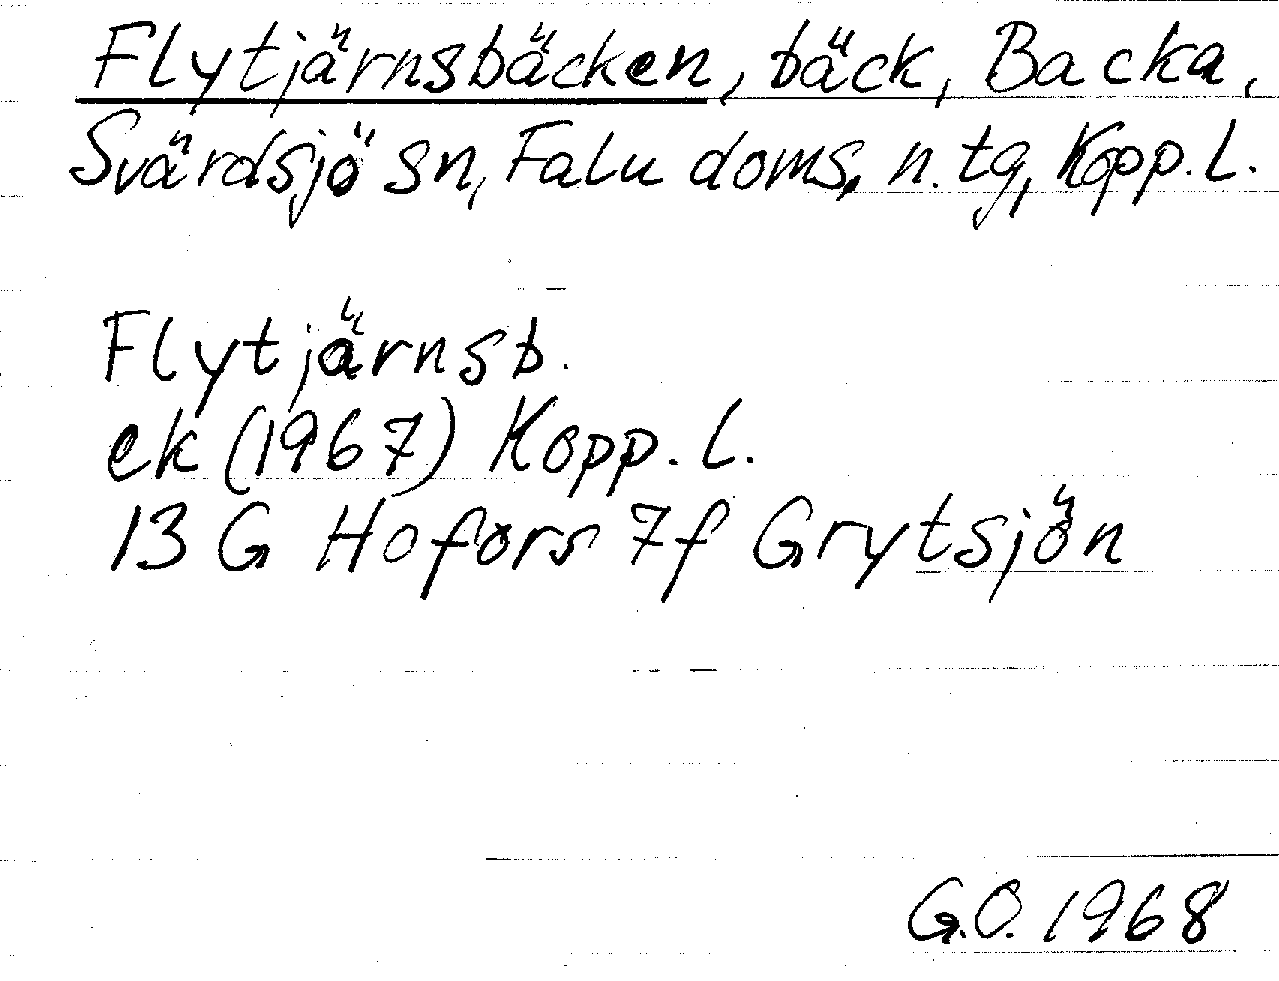 Flytjärnsbäcken, bäck, Backa,
Svärdsjö sn, Falu doms. n. tg, Kopp. l.
Flytjärnsb.
ek (1967) Kopp. l.
13 G Hofors 7f Grytsjön
G.O. 1968